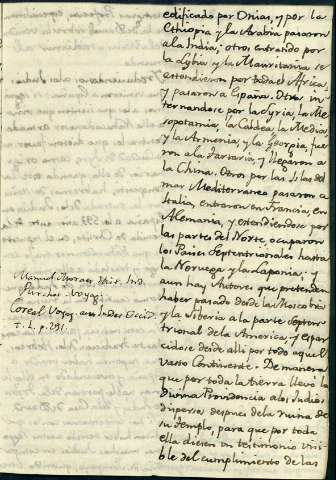 edificado por Onias, y por la
Ethiopia y la Arabia pasaron
a la India; otros entrando por
la Lybia y la Mauritania se
estendieron por toda el Africa,
y pasaron a España. Otros in-
ternandose por la Syria, la Me-
sopotamia, la Caldea, la Media
y la Armenia, y la Georgia, fue
ron a la Tartaria, y llegaron a
la China. Otros por las Islas del
mar Mediterráneo pasaron a
Italia, entraron en Francia, en
Alemania, y estendiendose por
las partes del Norte, ocuparon
los Países Septentrionales hasta
la Noruega y la Laponia; y
aun hay Autores que pretenden
haber pasado desde la Moscovia
y la Siberia a la parte Septen
trional de la America, y espar
cidose desde alli por todo aquel
vasto Continente. De manera
que por toda la tierra llevó la
Divina Providencia a los Judios
dispersos despues de la ruina de
su Templo, para que por toda
ella diesen un testimonio visi
ble del cumplimiento de las
Manuel Moraez Hist. Ind.
Purchas. Voyag.
Coreal Voyag. aux Indes Occid.
T. 1. p. 291.